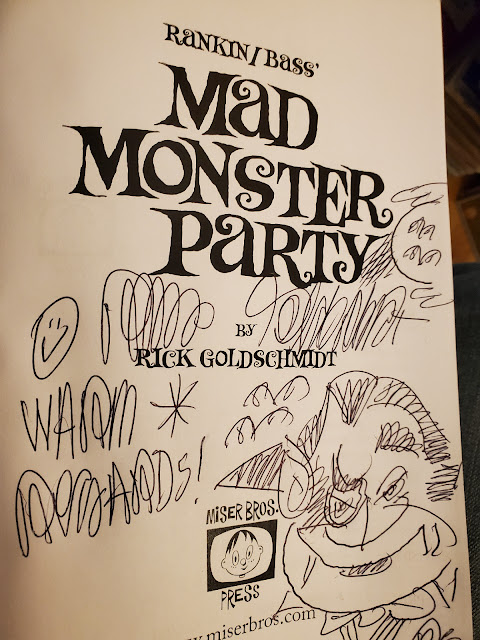 RANKIN/BASS'
MAD
MONSTER
PARTY
Rick Goldschmidt
BY
RICK GOLDSCHMIDT
WARM
REGARDS!
MISER BROS.
PRESS
.miserbros.com